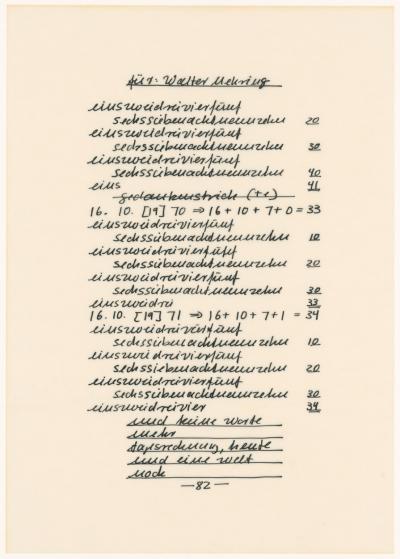 für: Walter Mehring
einszweidreivierfünf
sechssiebenachtneunzehn 20
einszweidreivierfünf
sechssiebenachtneunzehn 30
einszweidreivierfünf
sechssiebenachtneunzehn 40
eins 41
gedankenstrich (te)
16. 10. [19] 70 ⇒ 16 + 10 + 7 + 0 = 33
einszweidreivierfünf
sechssiebenachtneunzehn 10
einszweidreivierfünf
sechssiebenachtneunzehn 20
einszweidreivierfünf
sechssiebenachtneunzehn 30
einszweidrei 33
16. 10. [19] 71 ⇒ 16 + 10 + 7 + 1 = 34
einszweidreivierfünf
sechssiebenachtneunzehn 10
einszweidreivierfünf
sechssiebenachtneunzehn 20
einszweidreivierfünf
sechssiebenachtneunzehn 30
einszweidreivier 34
und keine worte
mehr
tagsrechnung, heute
und eine welt
noch
—82—